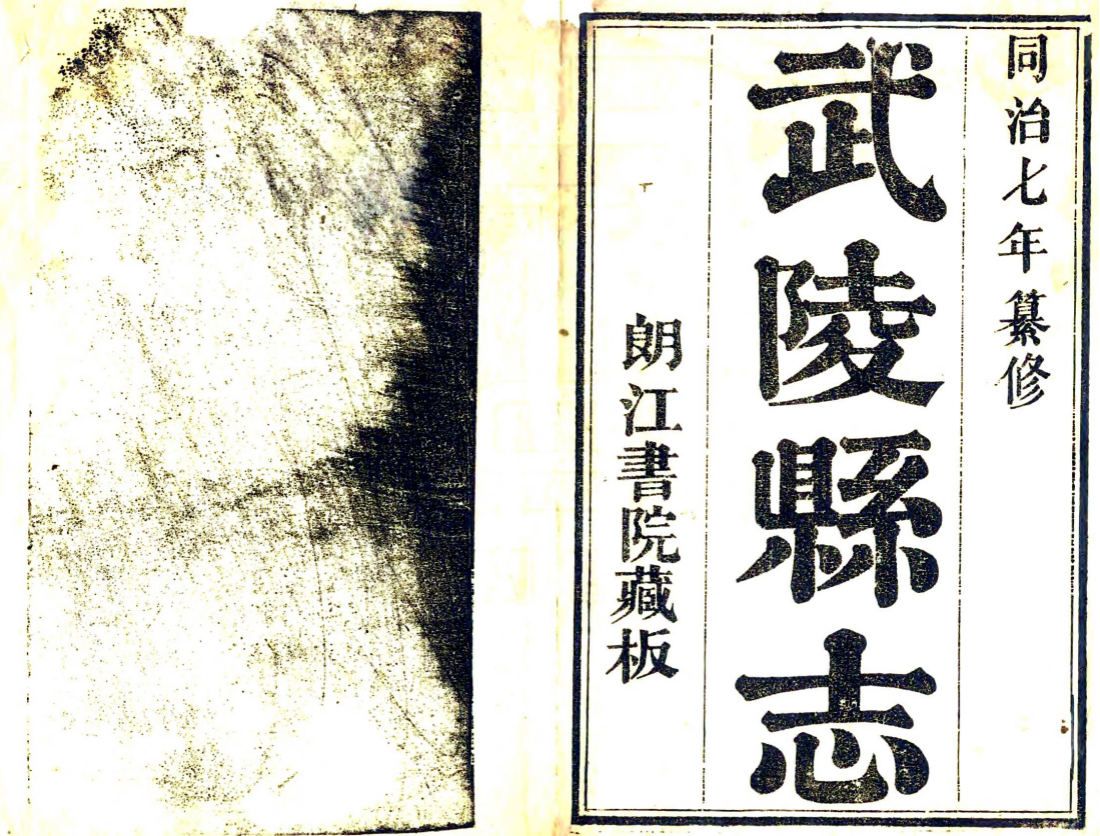 同治七年纂修
武陵縣志
朗江書院藏板